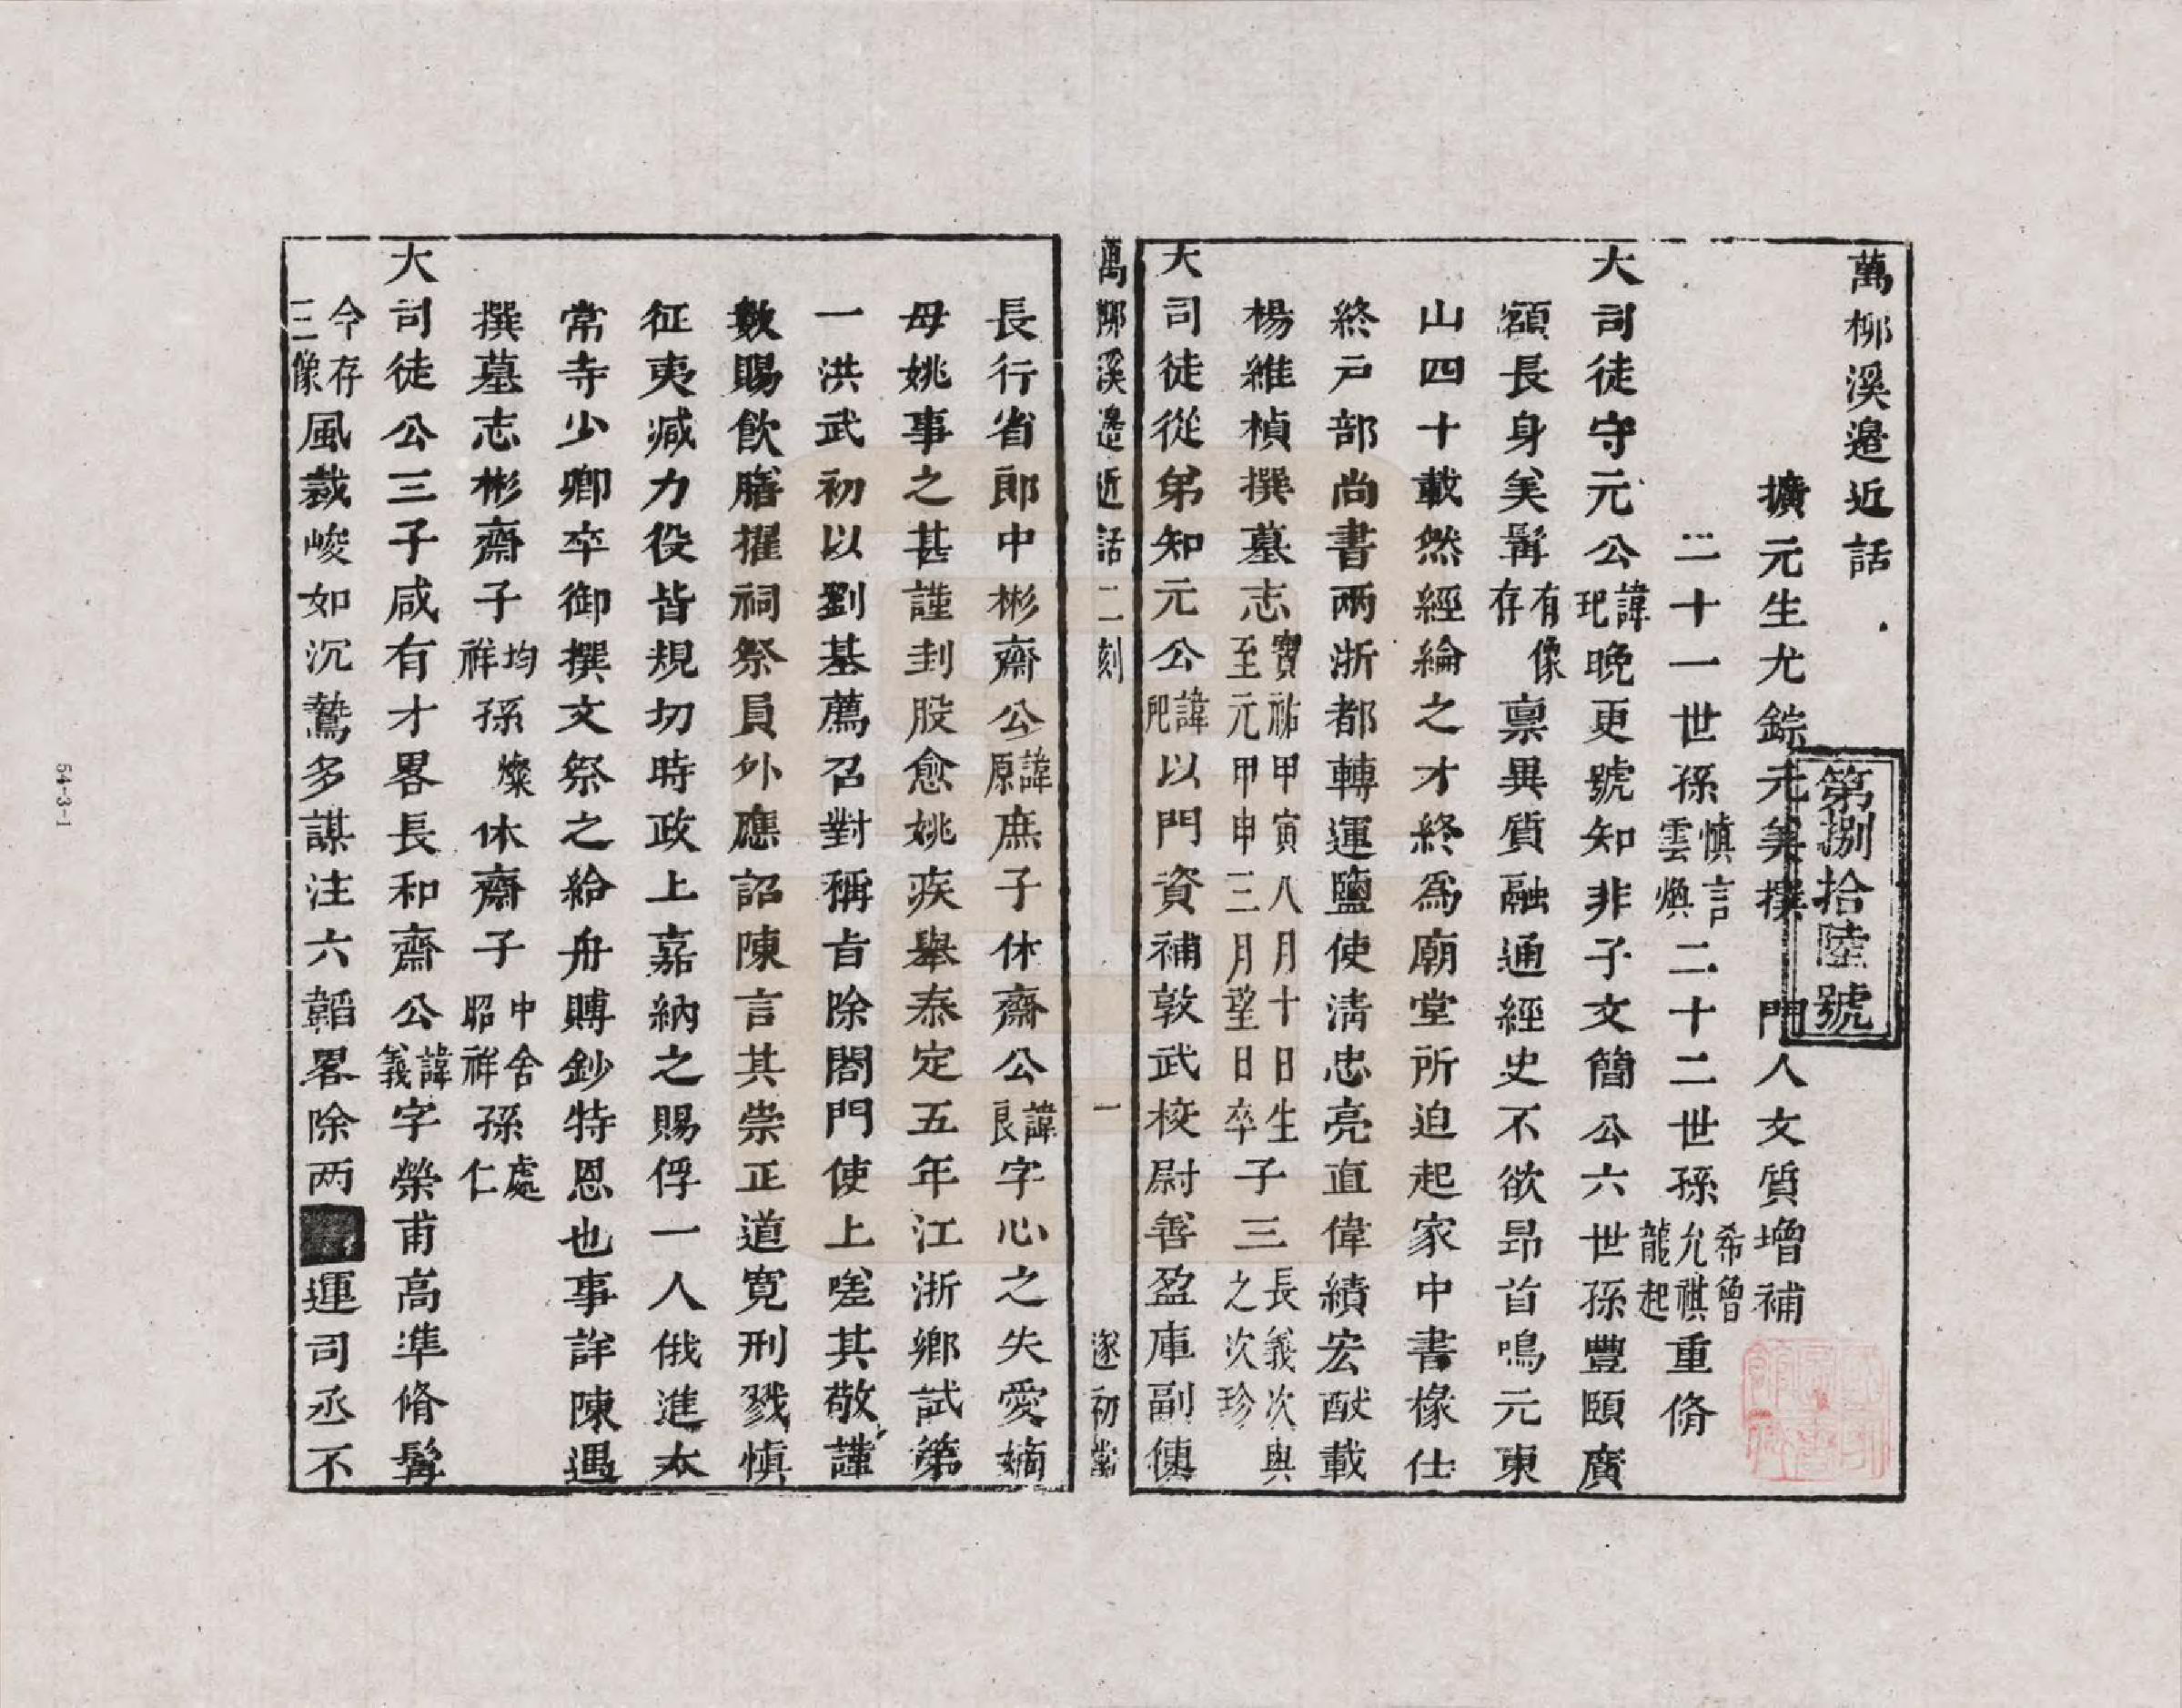 萬栁溪邉近話
擴元生尤鍂元美撰　門人女質增補
二十一世孫慎言雲煥二十二世孫希曾允祺龍起重脩
大司徒守元公諱玘晩更號知非子文簡公六世孫豐頤廣
額長身美髯有像存稟異質融通經史不欲昂首鳴元東
山四十載然經綸之才終爲廟堂所迫起家中書椽仕
終戸部尚書兩浙都轉運鹽使淸忠亮直偉績宏猷載
楊維楨撰墓志寳祐甲寅八月十日生至元甲申三月望日卒子三長義次與之次珍
大司徒從弟知元公諱以門資補敦武校尉善盈庫副傳
萬栁溪邉近話二刻　一　遂初堂
長行省郎中彬齋公諱原庶子休齋公諱良字心之失愛嫡
母姚事之甚謹刲股愈姚疾舉泰定五年江浙鄉試第
一洪武初以劉基薦召對稱㫖除閤門使上嗟其敬謹
數賜飲膳擢祠祭員外應詔陳言其崇正道寛刑戮愼
征夷減力役皆規切時政上嘉納之賜俘一人俄進太
常寺少卿卒御撰文祭之給舟賻鈔特恩也事詳陳遇
撰墓志彬齋子均祥孫燦休齋子中舍昭祥孫處仁
大司徒公三子咸有才畧長和齋公諱義字榮甫高準脩髯
今存三像風裁峻如沉鷙多謀注六韜畧除两運司丞不
第捌拾陸號
54-3-1